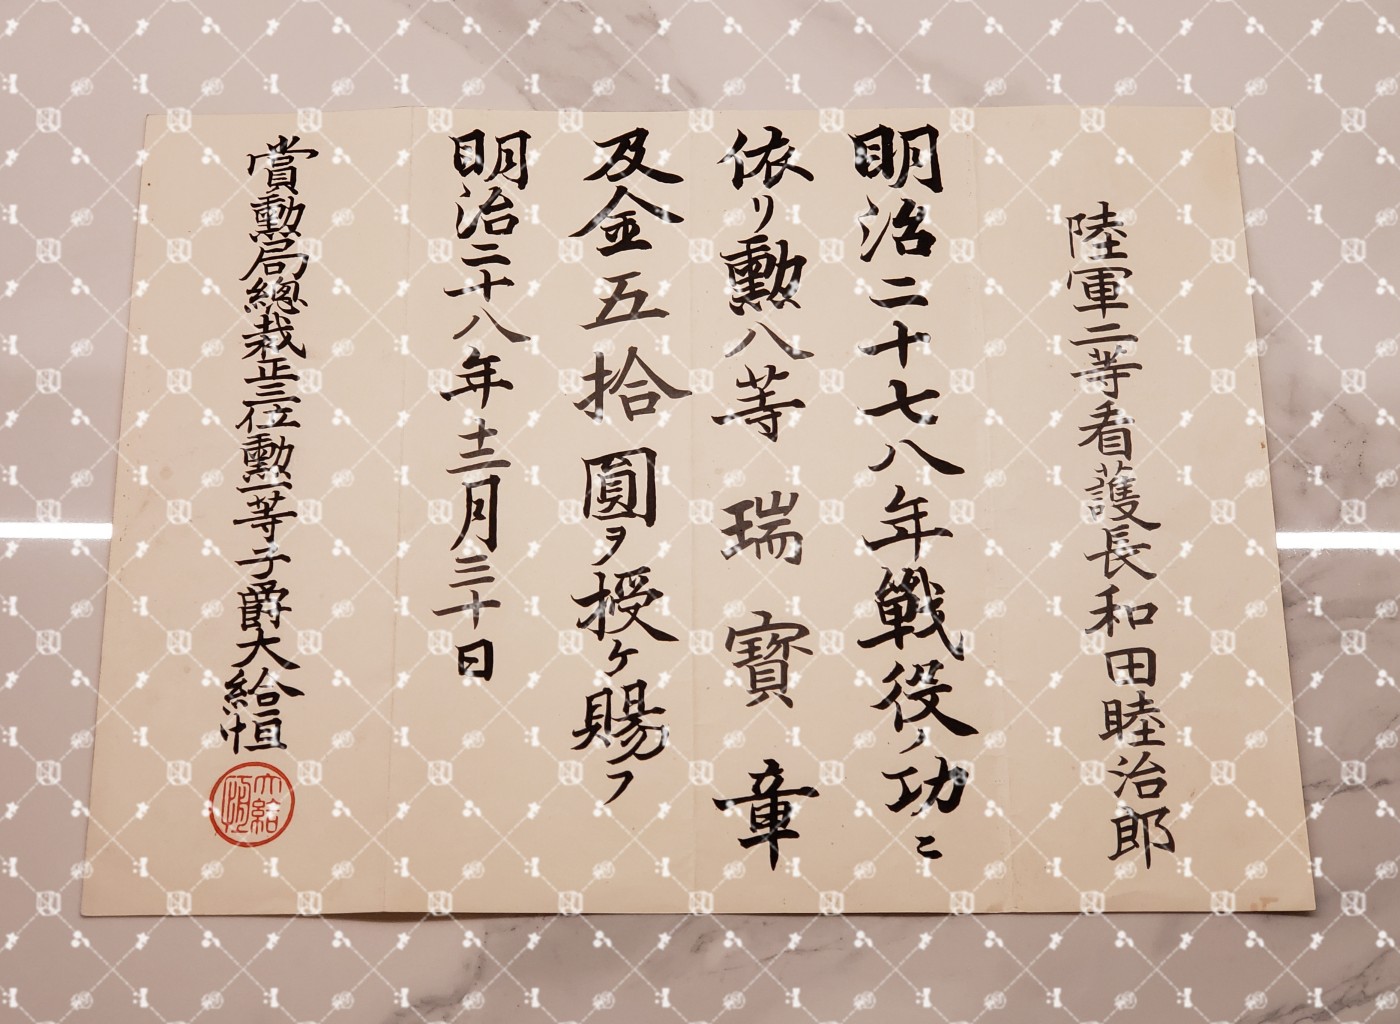 陸軍二等看護長和田睦治郎
明治二十七八年戰役ノ功ニ
依リ勲八等瑞寶章
及金五拾圓ヲ授ケ賜フ
明治二十八年十二月三十日
賞勲局總裁正三位勲一等子爵大給恒
大給恒